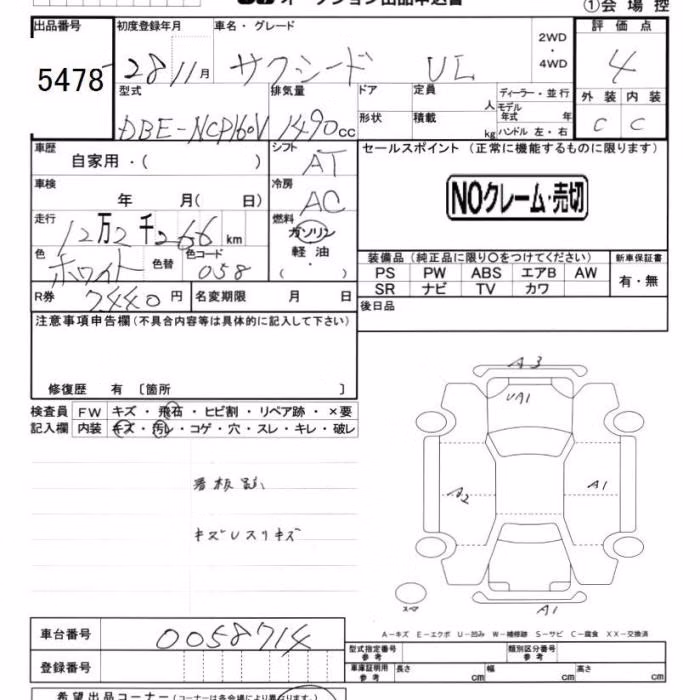 オークション出品申込書
①会場控
出品番号 初度登録年月 車名・グレード 2WD・4WD 評価点
5478 28 11月 サクシード UL 4
型式 排気量 ドア 定員 人 ディーラー・並行 外装 内装
DBE-NCP160V 1490cc 形状 積載 kg モデル年式 年 ハンドル 左・右 C C
車歴 自家用・( ) シフト AT セールスポイント (正常に機能するものに限ります)
車検 年 月( 日) 冷房 AC NOクレーム・売切
走行 12万2千266km 燃料 ガソリン 軽油 ・( )
色 ホワイト 色替 色コード 058
装備品 (純正品に限り○をつけてください) 新車保証書
PS PW ABS エアB AW 有・無
SR ナビ TV カワ
R券 7,440円 名変期限 月 日 後日品
注意事項申告欄 (不具合内容等は具体的に記入して下さい)
修復歴 有 〔箇所 〕
検査員 FW キズ・飛石・ヒビ割・リペア跡・×要
記入欄 内装 キズ・汚レ・コゲ・穴・スレ・キレ・破レ
A3
UA1
看板跡
A2 A1
キズUスリキズ
スペア A1
A-キズ E-エクボ U-凹み W-補修跡 S-サビ C-腐食 XX-交換済
車台番号 0058714
型式指定番号 参考 類別区分番号 参考
登録番号 車庫証明用 参考 長さ cm 幅 cm 高さ cm
希望出品コーナー (コーナーは各会場により異なります)